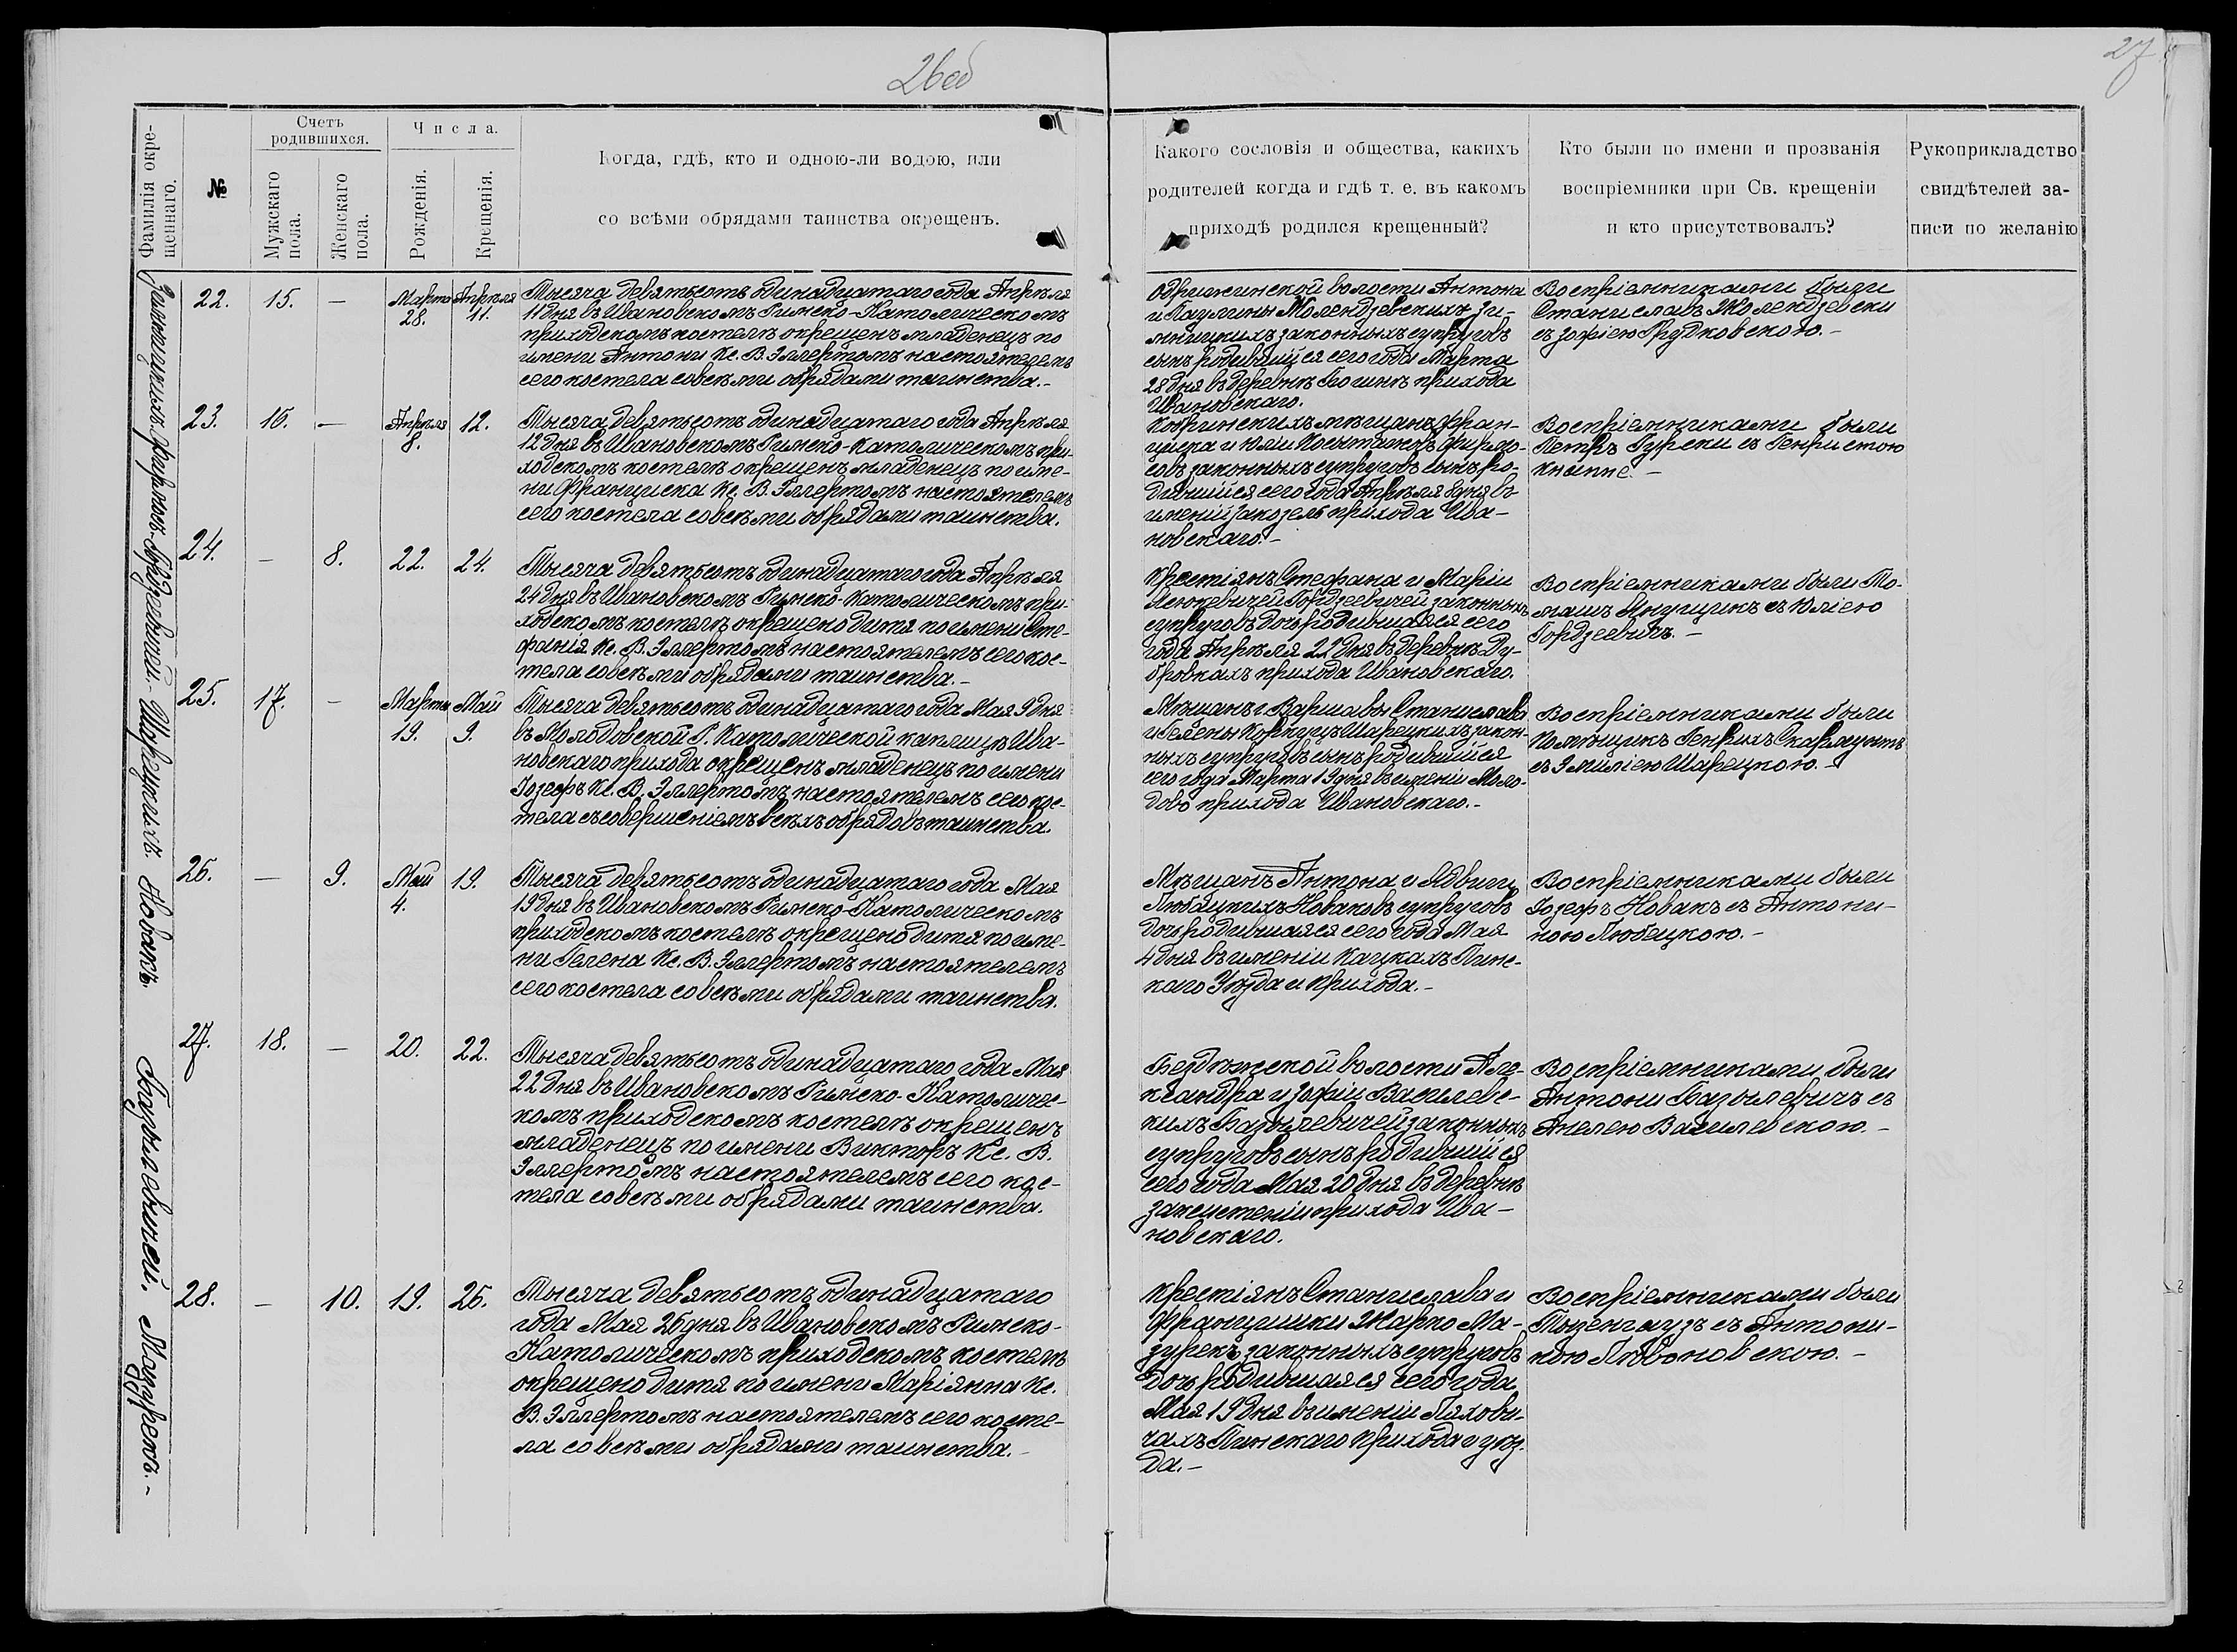 26об
27
Фамилія окре-
щеннаго.
№
Счетъ
родившихся.
Мужскаго
пола.
Женскаго
пола.
Числа.
Рожденія.
Крещенія.
Когда, гдѣ, кто и одною-ли водою, или
со всѣми обрядами таинства окрещенъ.
Какого сословія и общества, какихъ
родителей когда и гдѣ т. е. въ какомъ
приходѣ родился крещенный?
Кто были по имени и прозванія
воспріемники при Св. крещеніи
и кто присутствовалъ?
Рукоприкладство
свидѣтелей за-
писи по желанію
22. 15. — Марта 28. Апрѣля 11.
Тысяча девятьсотъ одинадцатаго года Апрѣля
11 дня въ Ивановскомъ Римско-Католическомъ
приходскомъ костелѣ окрещенъ младенецъ по
имени Антони Кс. В. Эллертомъ настоятелемъ
сего костела совсѣми обрядами таинства.-
Одрижинской волости Антона
и Паулины Жолендзевскихъ
законныхъ супруговъ
сынъ родившійся сего года Марта
28 дня въ деревнѣ прихода
Ивановскаго.
Воспріемниками были
Станиславъ Жолендзевски
съ Зофіею Грудковскою.-
23. 16. — Апрѣля 8. 12.
Тысяча девятьсотъ одинадцатаго года Апрѣля
12 дня въ Ивановскомъ Римско-Католическомъ при-
ходскомъ костелѣ окрещенъ младенецъ по име-
ни Франциска Кс. В. Эллертомъ настоятелемъ
сего костела совсѣми обрядами таинства.
Кобринскихъ мѣщанъ Фран-
циска и Юліи
законныхъ супруговъ сынъ ро-
дившійся сего года Апрѣля 8 дня въ
имѣніи Закозель прихода Ива-
новскаго.-
Воспріемниками были
Петръ Гурски съ Генріетою
24. — 8. 22. 24.
Тысяча девятьсотъ одинадцатаго года Апрѣля
24 дня въ Ивановскомъ Римско-Католическомъ при-
ходскомъ костелѣ окрещено дитя по имени Сте-
фанія Кс. В. Эллертомъ настоятелемъ сего кос-
тела совсѣми обрядами таинства.-
Крестіянъ Стефана и Маріи
Гордзеевичей законныхъ
супруговъ дочь родившаяся сего
года Апрѣля 22 дня въ деревнѣ Ду-
бровкахъ прихода Ивановскаго.
Воспріемниками были То-
машъ съ Юліею
Гордзеевичъ.-
25. 17. — Марта 19. Май 9.
Тысяча девятьсотъ одинадцатаго года Мая 9 дня
въ Молодовской Р. Католической каплицѣ Ива-
новскаго прихода окрещенъ младенецъ по имени
Іозефъ Кс. В. Эллертомъ настоятелемъ сего кос-
тела съ совершеніемъ всѣхъ обрядовъ таинства.
Мѣщанъ г. Варшавы Станислава
и Гелены Шарецкихъ закон-
ныхъ супруговъ сынъ родившійся
сего года Марта 19 дня въ имѣніи Моло-
дово прихода Ивановскаго.-
Воспріемниками были
помѣщикъ Генрихъ Скармунтъ
съ Эмиліею Шарецкою.-
26. — 9. Май 4. 19.
Тысяча девятьсотъ одинадцатаго года Мая
19 дня въ Ивановскомъ Римско-Католическомъ
приходскомъ костелѣ окрещено дитя по име-
ни Гелена Кс. В. Эллертомъ настоятелемъ
сего костела совсѣми обрядами таинства.
Мѣщанъ Антона и Ядвиги
Любецкихъ Новаковъ супруговъ
дочь родившаяся сего года Мая
4 дня въ имѣніи Кацкахъ Пинс-
каго Уѣзда и прихода.-
Воспріемниками были
Іозефъ Новакъ съ Антони-
ною Любецкою.-
27. 18. — 20. 22.
Тысяча девятьсотъ одинадцатаго года Мая
22 дня въ Ивановскомъ Римско-Католичес-
комъ приходскомъ костелѣ окрещенъ
младенецъ по имени Викторъ Кс. В.
Эллертомъ настоятелемъ сего кос-
тела совсѣми обрядами таинства.
Бездѣжской волости Але-
ксандра и Зофіи Василевс-
кихъ Базылевичей законныхъ
супруговъ сынъ родившійся
сего года Мая 20 дня въ деревнѣ
прихода Ива-
новскаго.
Воспріемниками были
Антони Базылевичъ съ
Анелею Василевскою.-
28. — 10. 19. 26.
Тысяча девятьсотъ одинадцатаго
года Мая 26 дня въ Ивановскомъ Римско-
Католическомъ приходскомъ костелѣ
окрещено дитя по имени Маріянна Кс.
В. Эллертомъ настоятелемъ сего косте-
ла совсѣми обрядами таинства.-
Крестіянъ Станислава и
Францишки Жарко Ма-
зурекъ законныхъ супруговъ
дочь родившаяся сего года
Мая 19 дня въ имѣніи Ляхови-
чахъ Пинскаго прихода и уѣз-
да.-
Воспріемниками были
Тызенгаузъ съ Антони-
ною Любоновскою.-
Гордзеевичей.- Шарецкихъ. Новакъ. Базылевичей. Мазурекъ.-